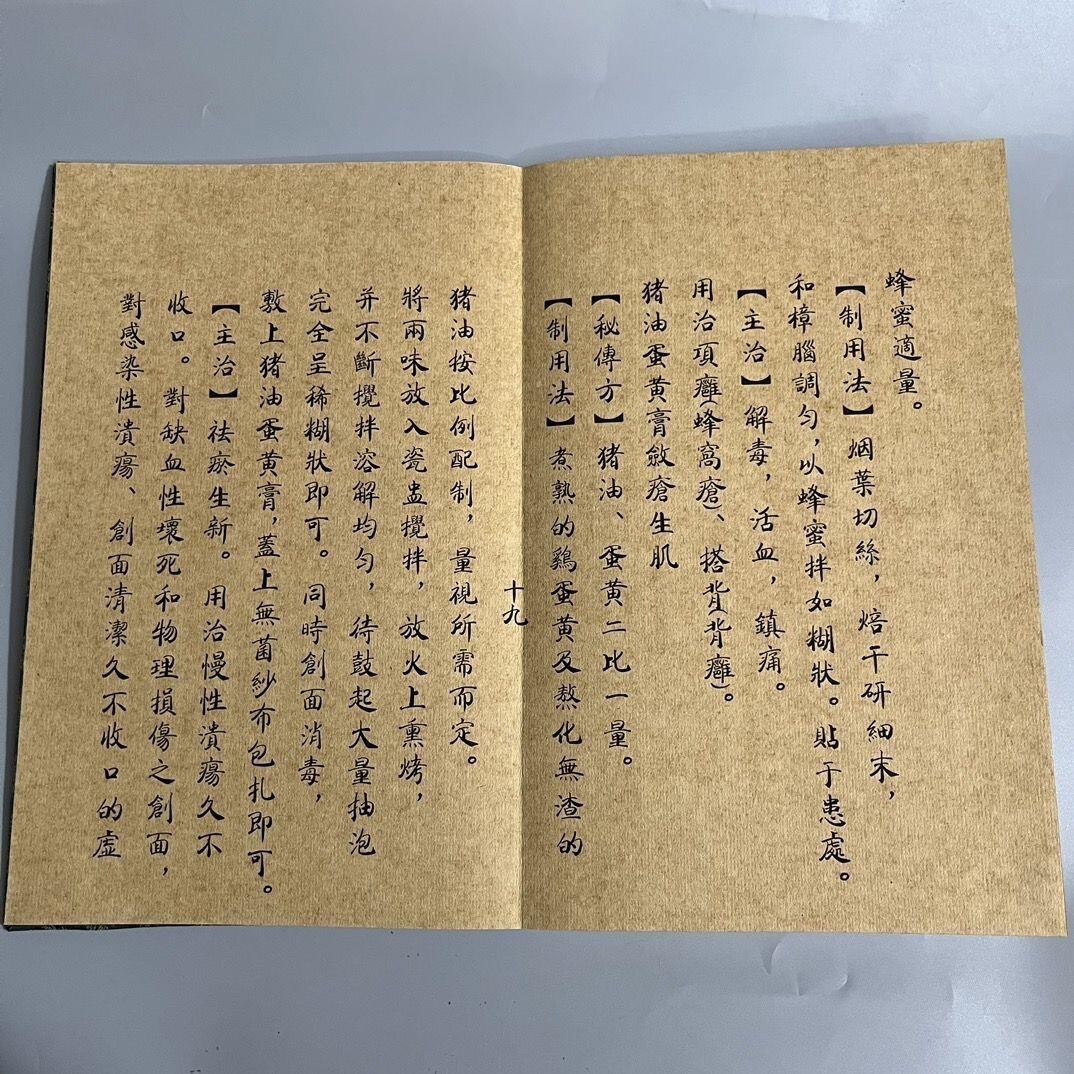 蜂蜜適量。
【制用法】烟葉切絲，焙干研細末，
和樟腦調匀，以蜂蜜拌如糊狀。貼于患處。
【主治】解毒，活血，鎮痛。
用治項癰(蜂窩瘡)、搭背(背癰)。
猪油蛋黄膏斂瘡生肌
【秘傳方】猪油、蛋黄二比一量。
【制用法】煮熟的鷄蛋黄及熬化無渣的
十九
猪油按比例配制，量視所需而定。
將兩味放入瓷盅攪拌，放火上熏烤，
并不斷攪拌溶解均匀，待鼓起大量抽泡
完全呈稀糊狀即可。同時創面消毒，
敷上猪油蛋黄膏，蓋上無菌紗布包扎即可。
【主治】祛瘀生新。用治慢性潰瘍久不
收口。對缺血性壞死和物理損傷之創面，
對感染性潰瘍、創面清潔久不收口的虚